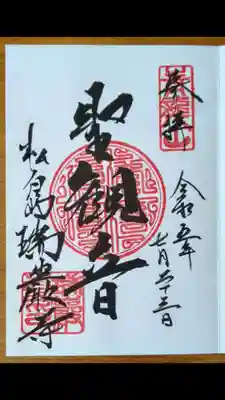 奉拝
令和五年
七月二十三日
聖観音
松島瑞巌寺